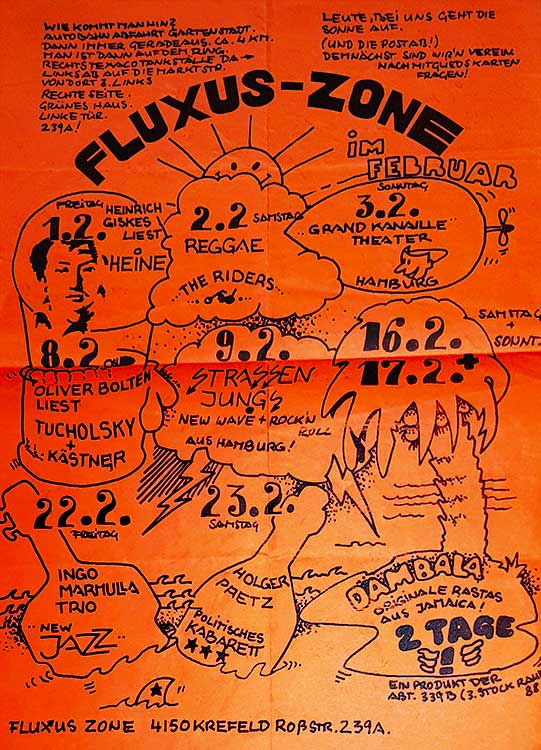 WIE KOMMT MAN HIN?
AUTOBAHN ABFAHRT GARTENSTADT.
DANN IMMER GERADEAUS. CA. 4 KM.
MAN IST DANN AUF DEM RING.
RECHTS TEXACO TANKSTÄLLE DA →
LINKS AB AUF DIE MARKTSTR.
VON DORT 3. LINKS
RECHTE SEITE.
GRÜNES HAUS.
LINKE TÜR.
239A!
LEUTE, BEI UNS GEHT DIE
SONNE AUF.
(UND DIE POST AB!)
DEMNÄCHST SIND WIR'N VEREIN
NACH MITGLIEDSKARTEN
FRAGEN!
FLUXUS-ZONE
IM
FEBRUAR
FREITAG
1.2.
HEINRICH
GISKES
LIEST
HEINE
2.2 SAMSTAG
REGGAE
THE RIDERS
SONNTAG
3.2.
GRAND KANAILLE
THEATER
HAMBURG
8.2.
OLIVER BOLTEN
LIEST
TUCHOLSKY
+
KÄSTNER
9.2.
STRASSEN
JUNGS
NEW WAVE + ROCK'N
ROLL
AUS HAMBURG!
16.2.
17.2.+
SAMSTAG
+
SONNT.
22.2.
FREITAG
INGO
MARMULLA
TRIO
"NEW
JAZZ"
23.2.
SAMSTAG
HOLGER
PAETZ
POLITISCHES
KABARETT
DAMBALA
ORIGINALE RASTAS
AUS JAMAICA!
2 TAGE
!
EIN PRODUKT DER
ABT. 339B (3. STOCK RAUM
88
FLUXUS ZONE 4150 KREFELD ROßSTR. 239A.